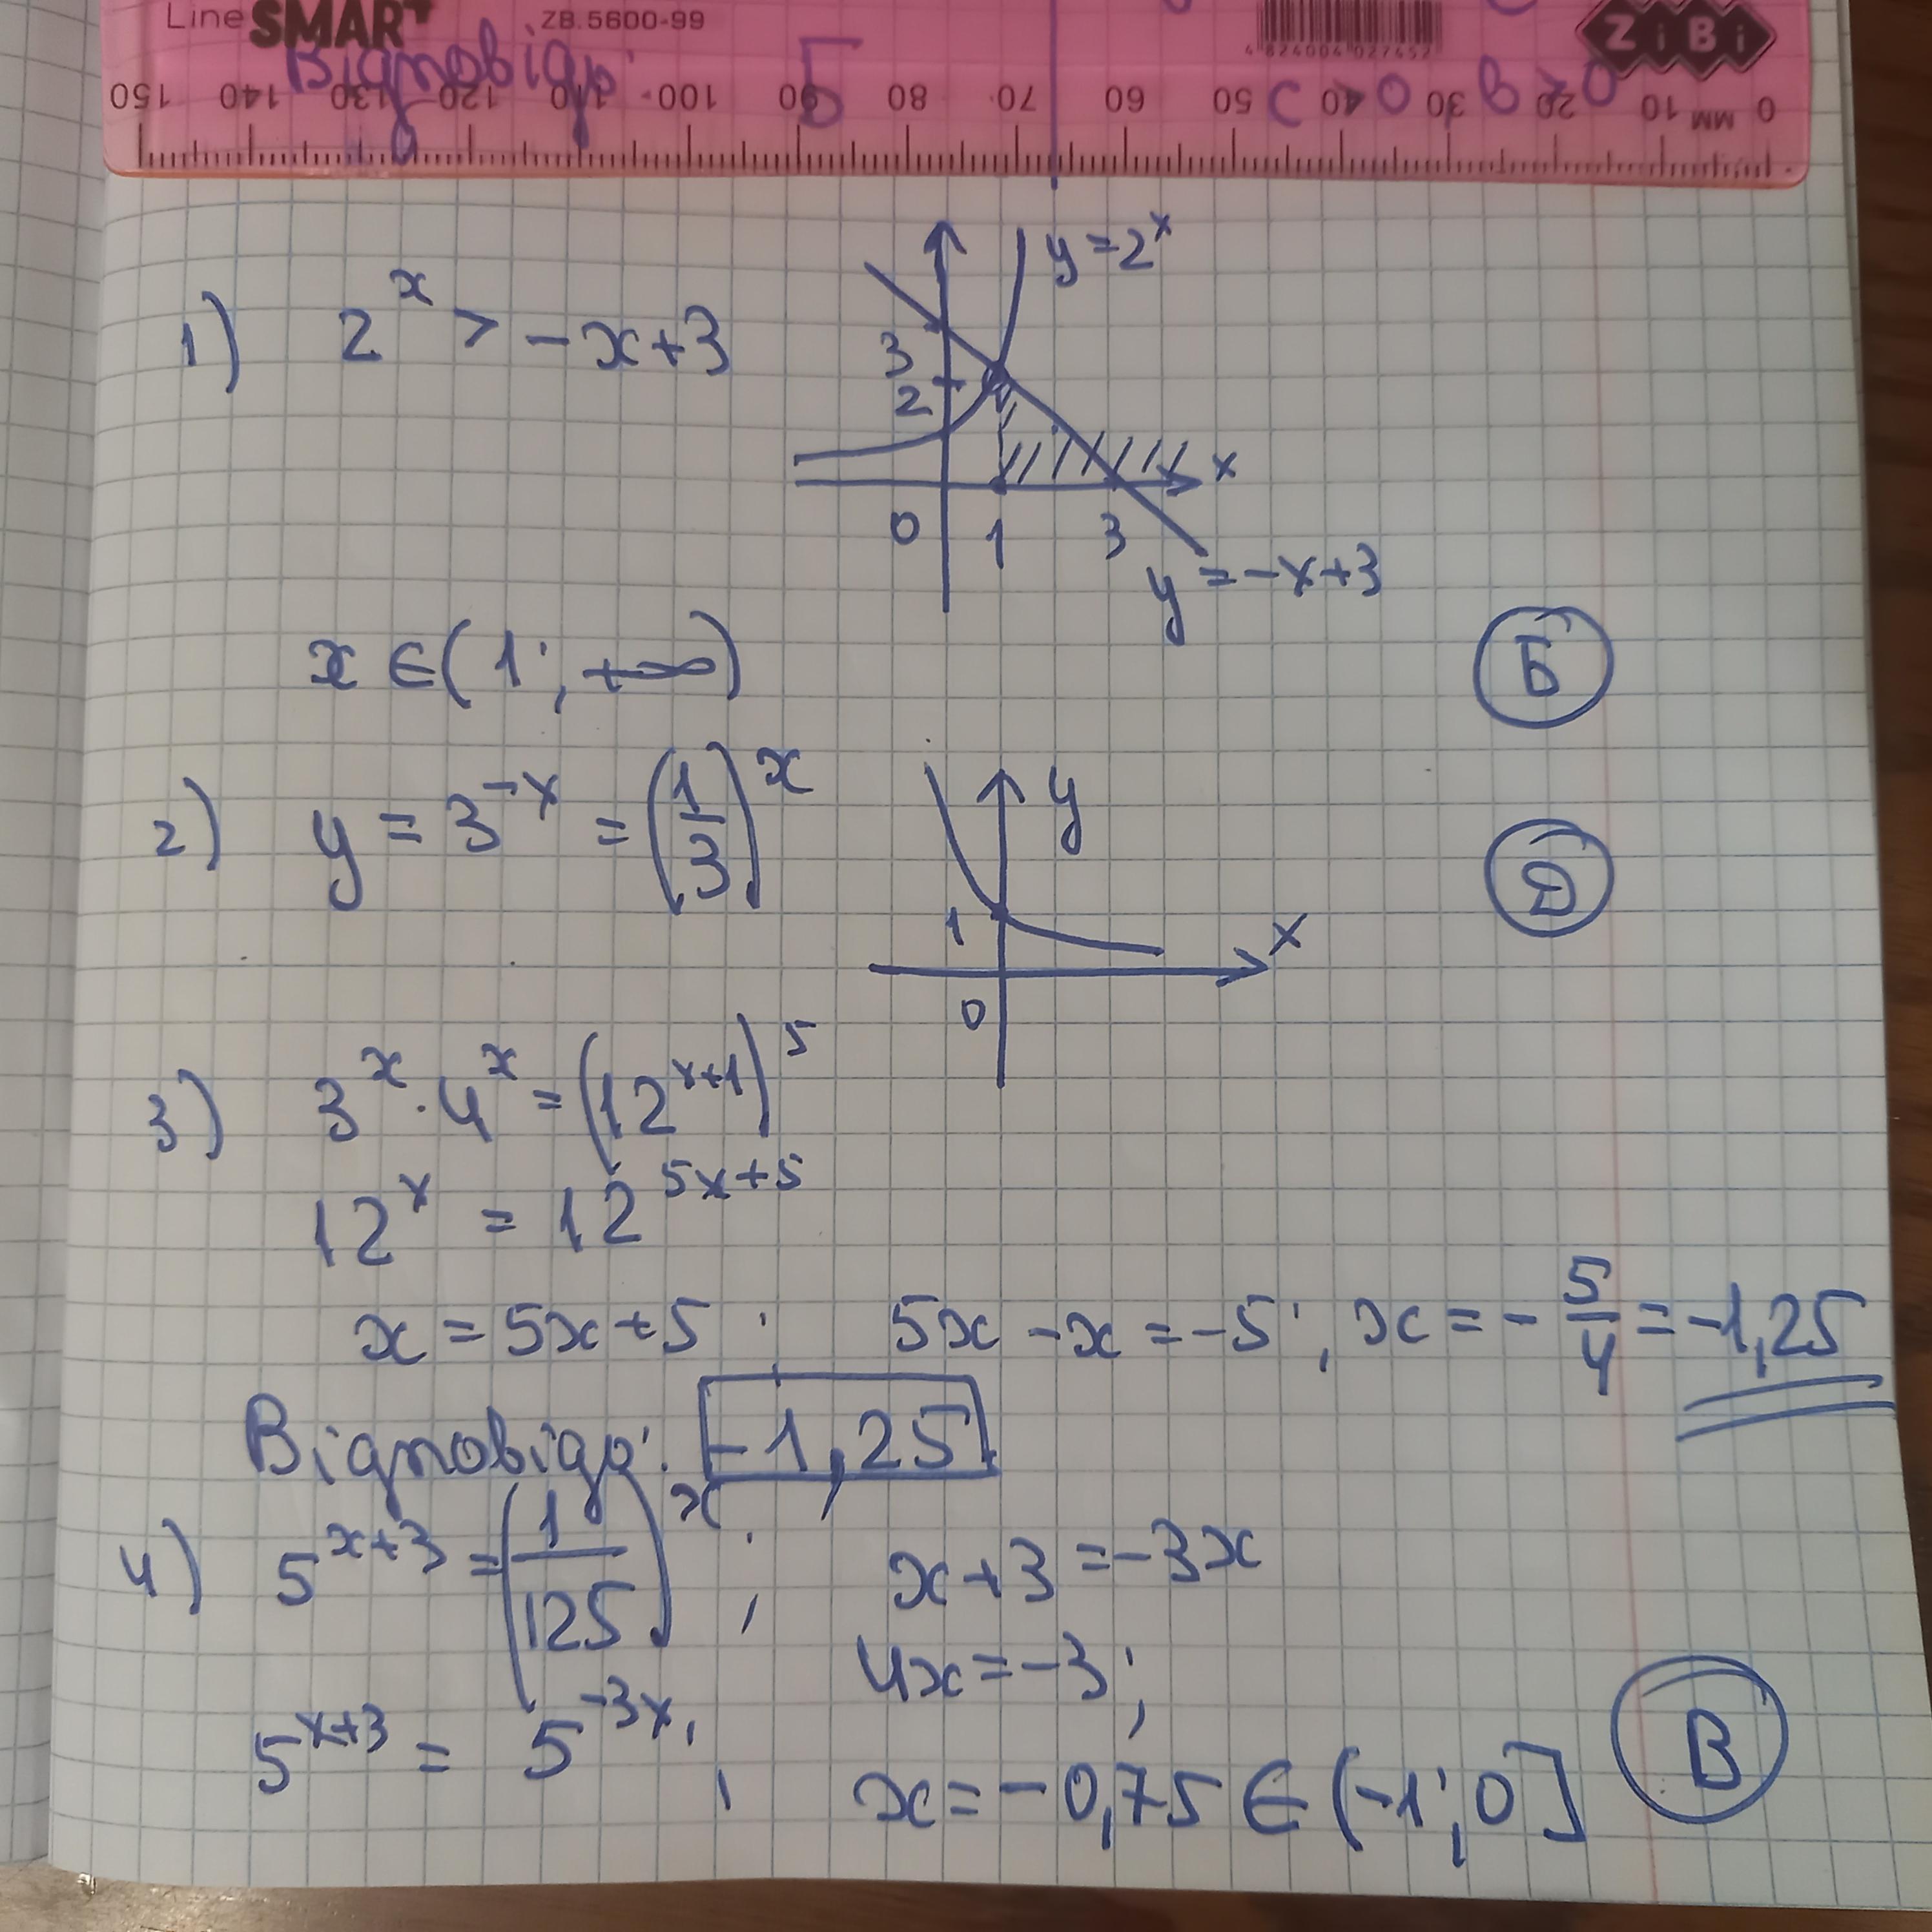 Line SMART ZB.5600-99
4 824004 027452
ZiBi
Відповідь: 5
150 140 130 120 110 100 90 80 70 60 50 40 30 20 10 мм 0
1) 2^x > -x+3
y=2^x
3
2
x
0 1 3
y=-x+3
x ∈ (1; +∞)
Б
2) y = 3^{-x} = (1/3)^x
y
Д
1
x
0
3) 3^x · 4^x = (12^{x+1})^5
12^x = 12^{5x+5}
x = 5x+5; 5x - x = -5; x = -5/4 = -1,25
Відповідь: -1,25
4) 5^{x+3} = (1/125)^x; x+3 = -3x
4x = -3;
5^{x+3} = 5^{-3x}; x = -0,75 ∈ (-1; 0]
В